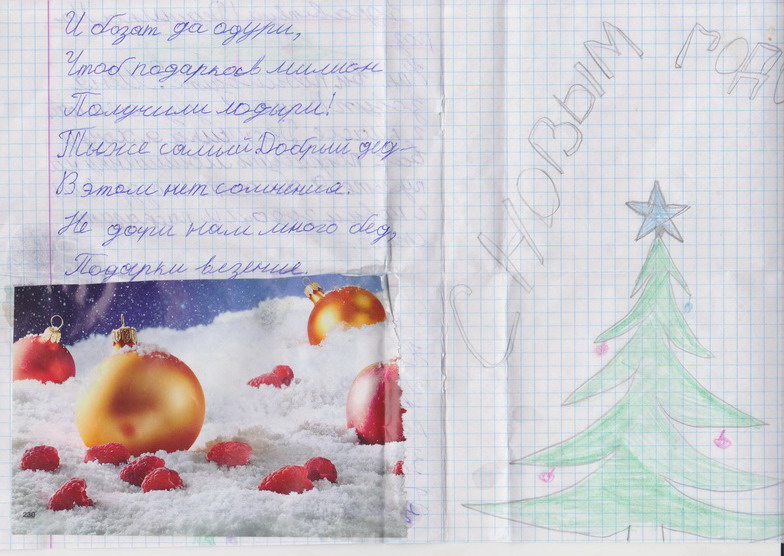 И бозат да одури,
Чтоб подарков милион
Получили лодыри!
Ты же самый Добрый дед
В этом нет сомнения.
Не дари нам много бед,
Подарки везение.
230
С НОВЫМ
ГОД